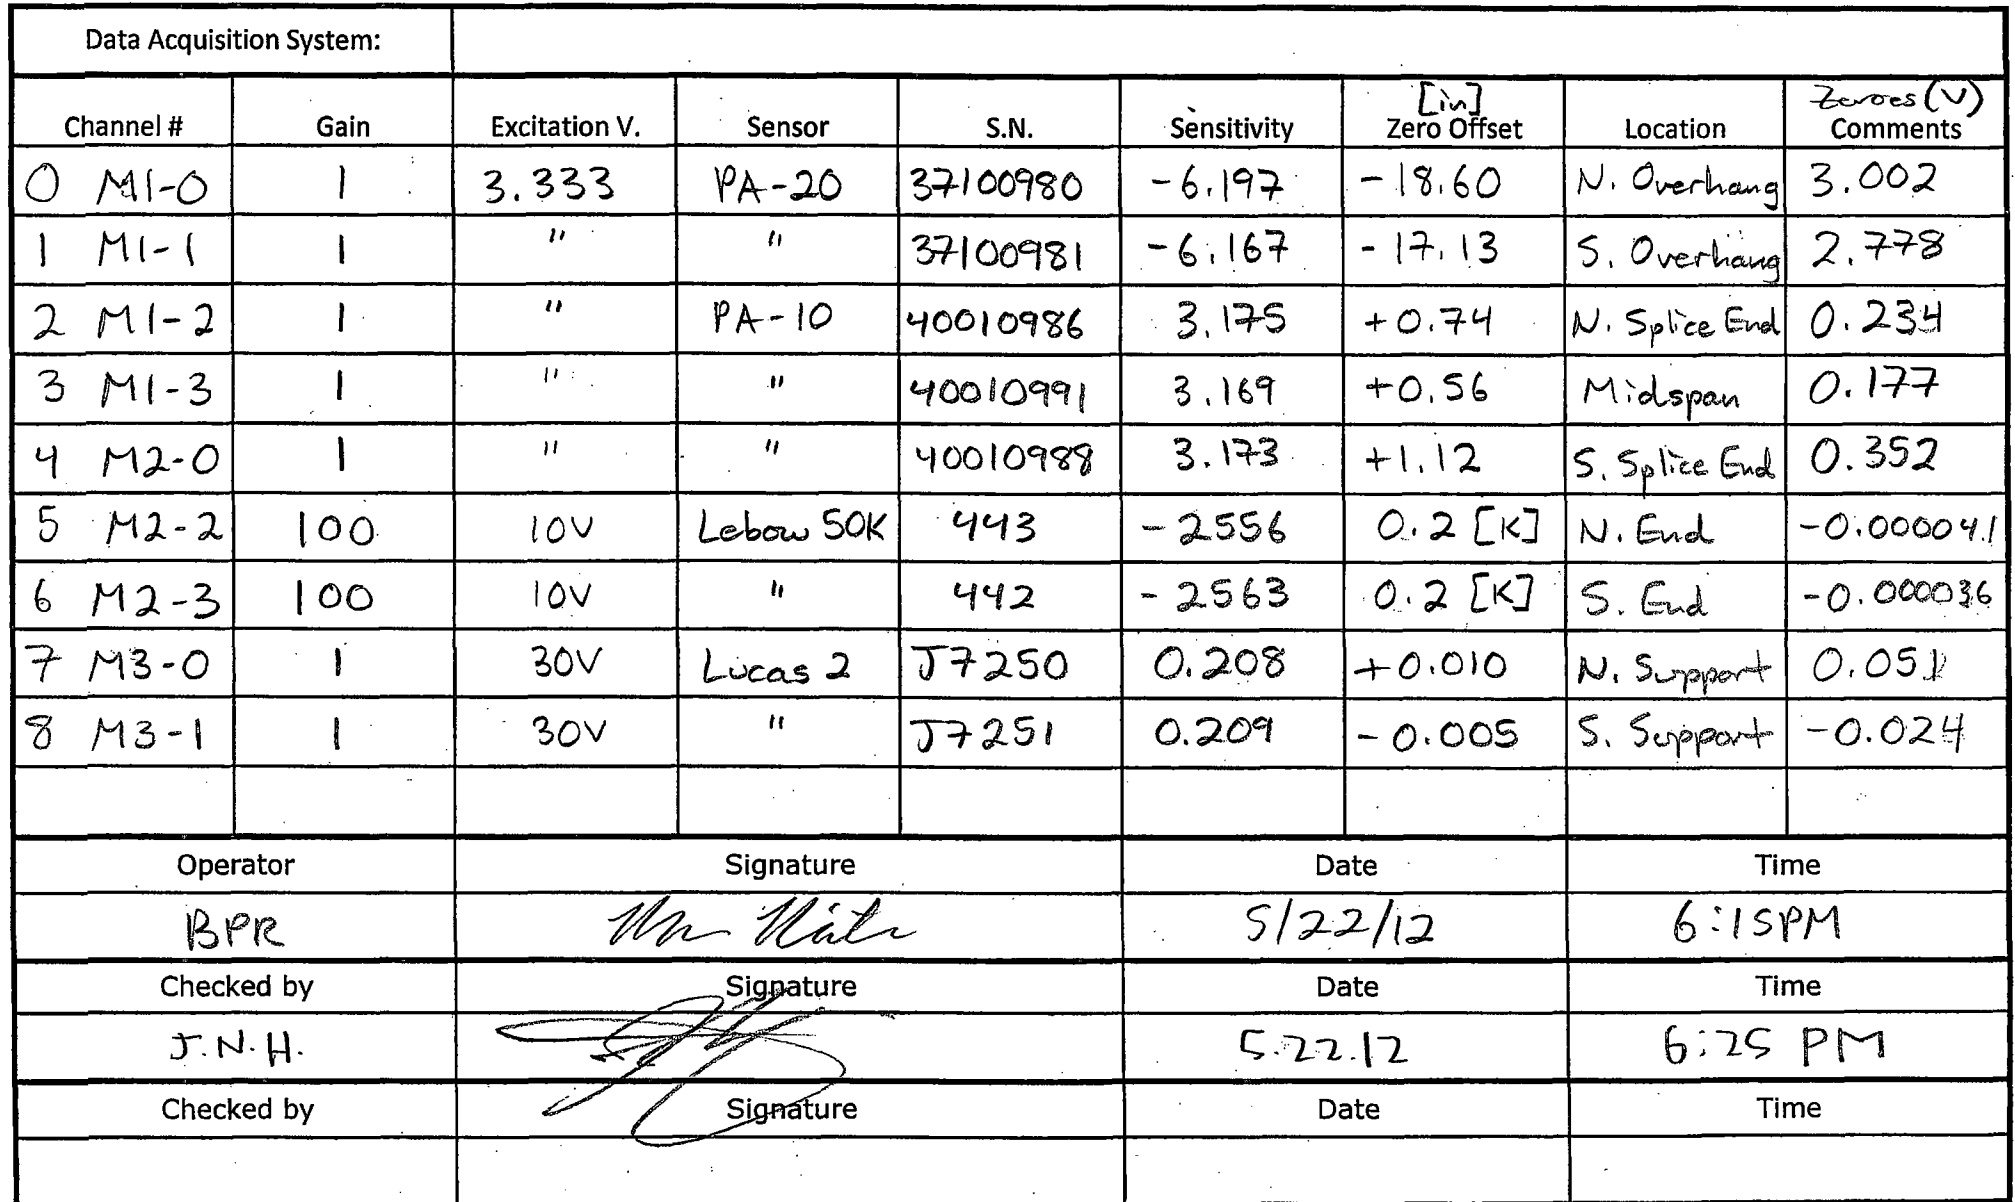 Data Acquisition System:
[in] Zeroes (V)
Channel # Gain Excitation V. Sensor S.N. Sensitivity Zero Offset Location Comments
0 M1-0 1 3.333 PA-20 37100980 -6.197 -18.60 N. Overhang 3.002
1 M1-1 1 " " 37100981 -6.167 -17.13 S. Overhang 2.778
2 M1-2 1 " PA-10 40010986 3.175 +0.74 N. Splice End 0.234
3 M1-3 1 " " 40010991 3.169 +0.56 Midspan 0.177
4 M2-0 1 " " 40010988 3.173 +1.12 S. Splice End 0.352
5 M2-2 100 10V Lebow 50K 443 -2556 0.2 [K] N. End -0.000041
6 M2-3 100 10V " 442 -2563 0.2 [K] S. End -0.000036
7 M3-0 1 30V Lucas 2 J7250 0.208 +0.010 N. Support 0.051
8 M3-1 1 30V " J7251 0.209 -0.005 S. Support -0.024
Operator Signature Date Time
BPR 5/22/12 6:15PM
Checked by Signature Date Time
J.N.H. 5.22.12 6:25 PM
Checked by Signature Date Time